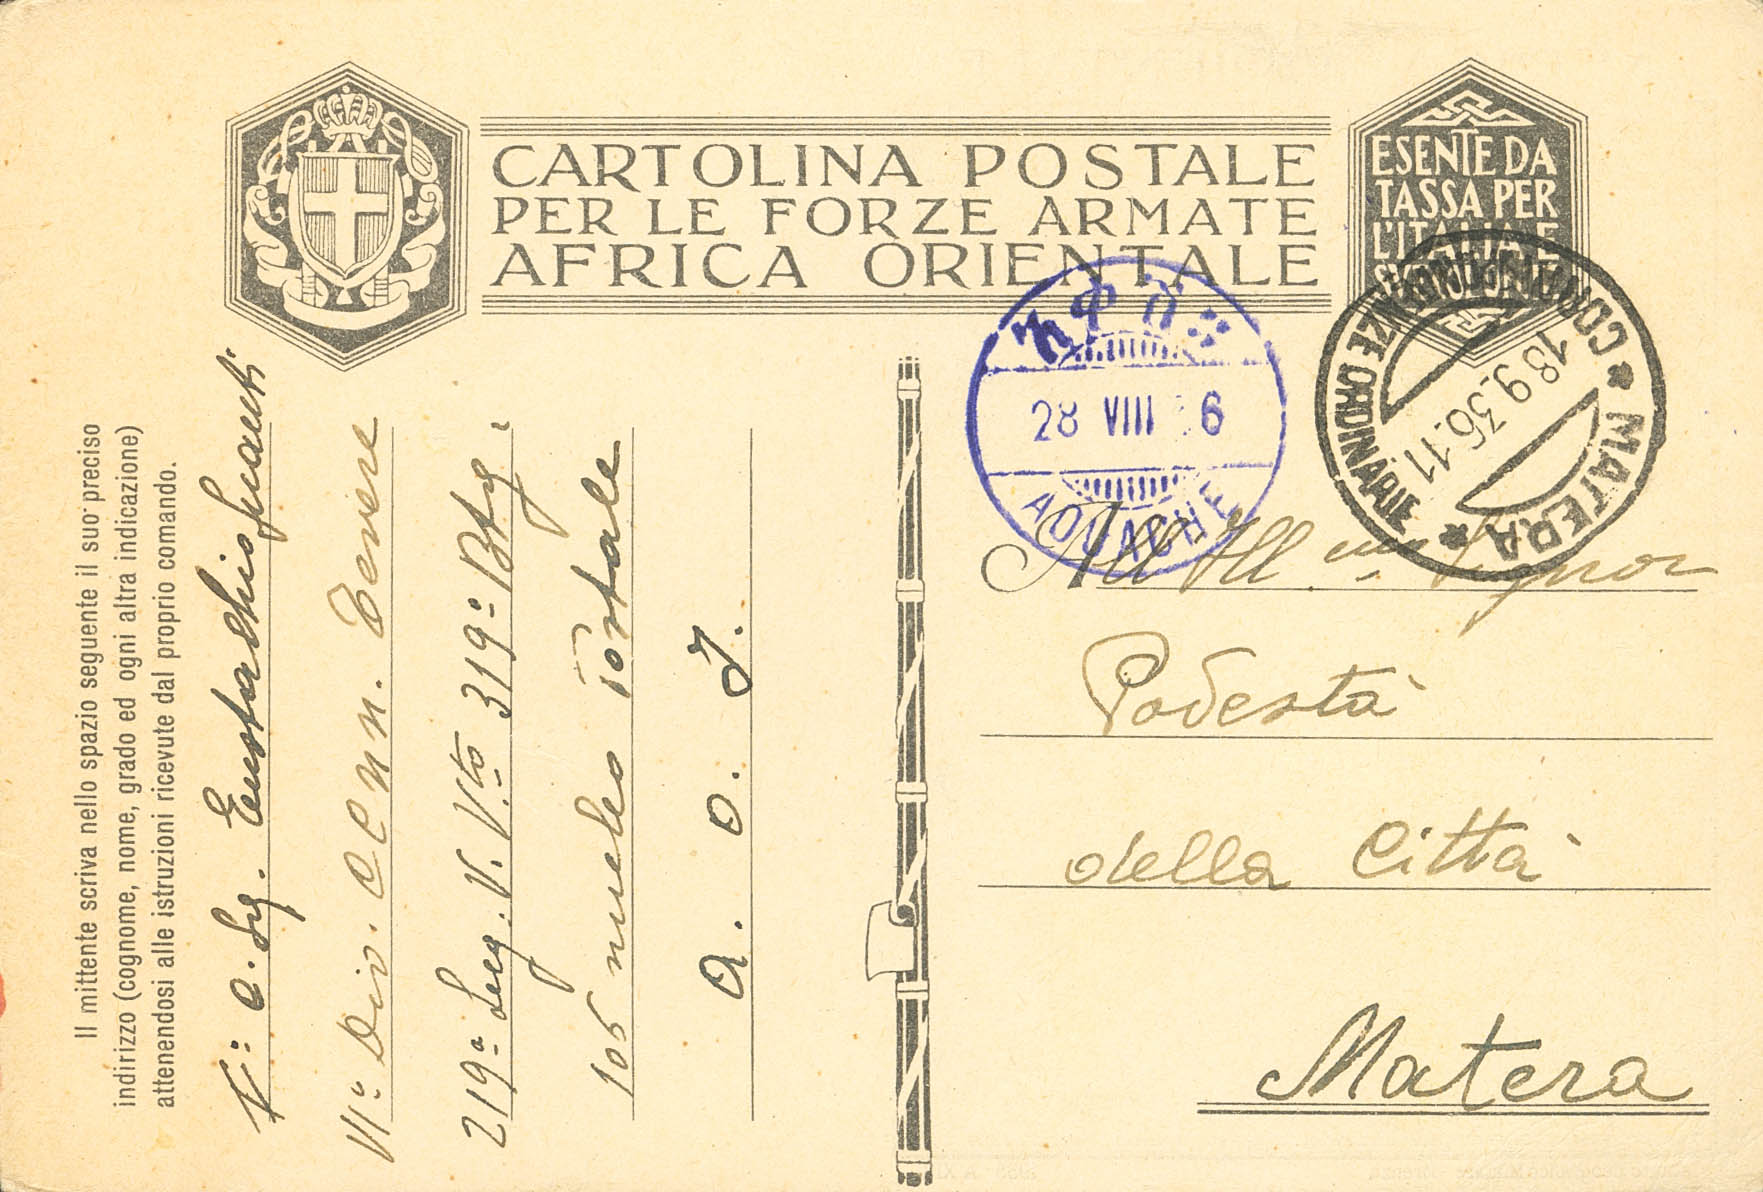 CARTOLINA POSTALE
PER LE FORZE ARMATE
AFRICA ORIENTALE
ESENTE DA
TASSA PER
L'ITALIA E
28 VIII 6
ADUACHE
CORRISPONDENZE ORDINARIE
MATERA
18.9.36.11
Il mittente scriva nello spazio seguente il suo preciso
indirizzo (cognome, nome, grado ed ogni altra indicazione)
attenendosi alle istruzioni ricevute dal proprio comando.
V° C. Sq. Eustachio
VIª Div. CC NN. Tevere
219ª Leg. V. V.to 319º Btg.
105 Postale
A. O. I.
All'Ill Signor
Podestà
della Città
Matera